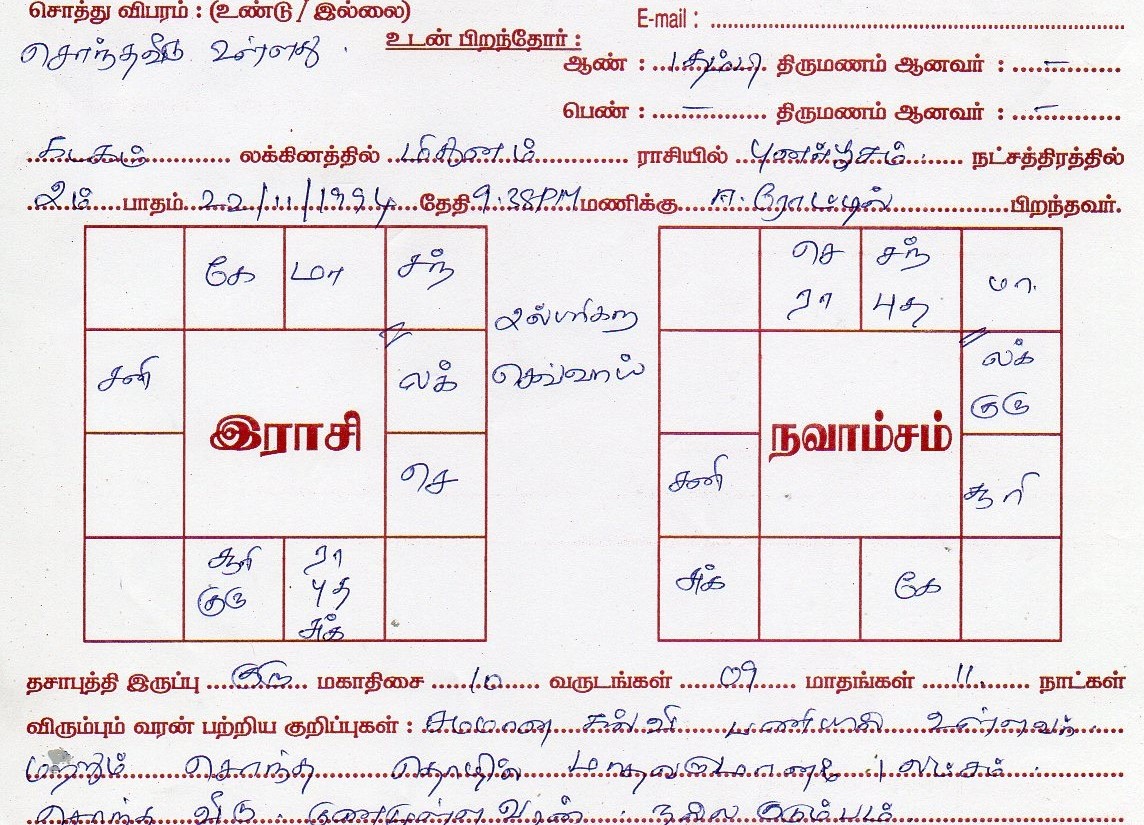 சொத்து விபரம் : (உண்டு / இல்லை)
E-mail :
சொந்தவீடு உள்ளது .
உடன் பிறந்தோர் :
ஆண் : தம்பி திருமணம் ஆனவர் : –
பெண் : – திருமணம் ஆனவர் : –
கடகம் லக்கினத்தில் மிதுனம் ராசியில் புனர்பூசம் நட்சத்திரத்தில்
2ம் பாதம் 22/11/1994 தேதி 9.38PM மணிக்கு ஈரோட்டில் பிறந்தவர்.
கே மா சந்
சனி லக் செ
சூரி குரு
ரா புத சுக்
இராசி
2ல் பரிகார
செவ்வாய்
செ ரா
சந் புத
மா.
லக் குரு
சனி சூரி
சுக் கே
நவாம்சம்
தசாபுத்தி இருப்பு குரு மகாதிசை 10 வருடங்கள் 09 மாதங்கள் 11 நாட்கள்
விரும்பும் வரன் பற்றிய குறிப்புகள் : சமமான கல்வி பணியில் உள்ளவர்
மற்றும் சொந்த தொழில் மாதவருமானம் 1 லட்சம்
சொந்த வீடு . குணமுள்ள வரன் . நல்ல குடும்பம்